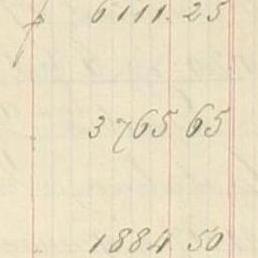 6111. 25
3765 65
1884 50